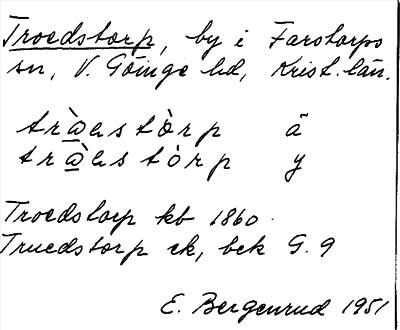 Troedstorp, by i Farstorps
sn, V. Göinge hd, Krist. län.
ä
y
Troedstorp kb 1860.
Truedstorp ek, bek G. 9
E. Bergenrud 1951